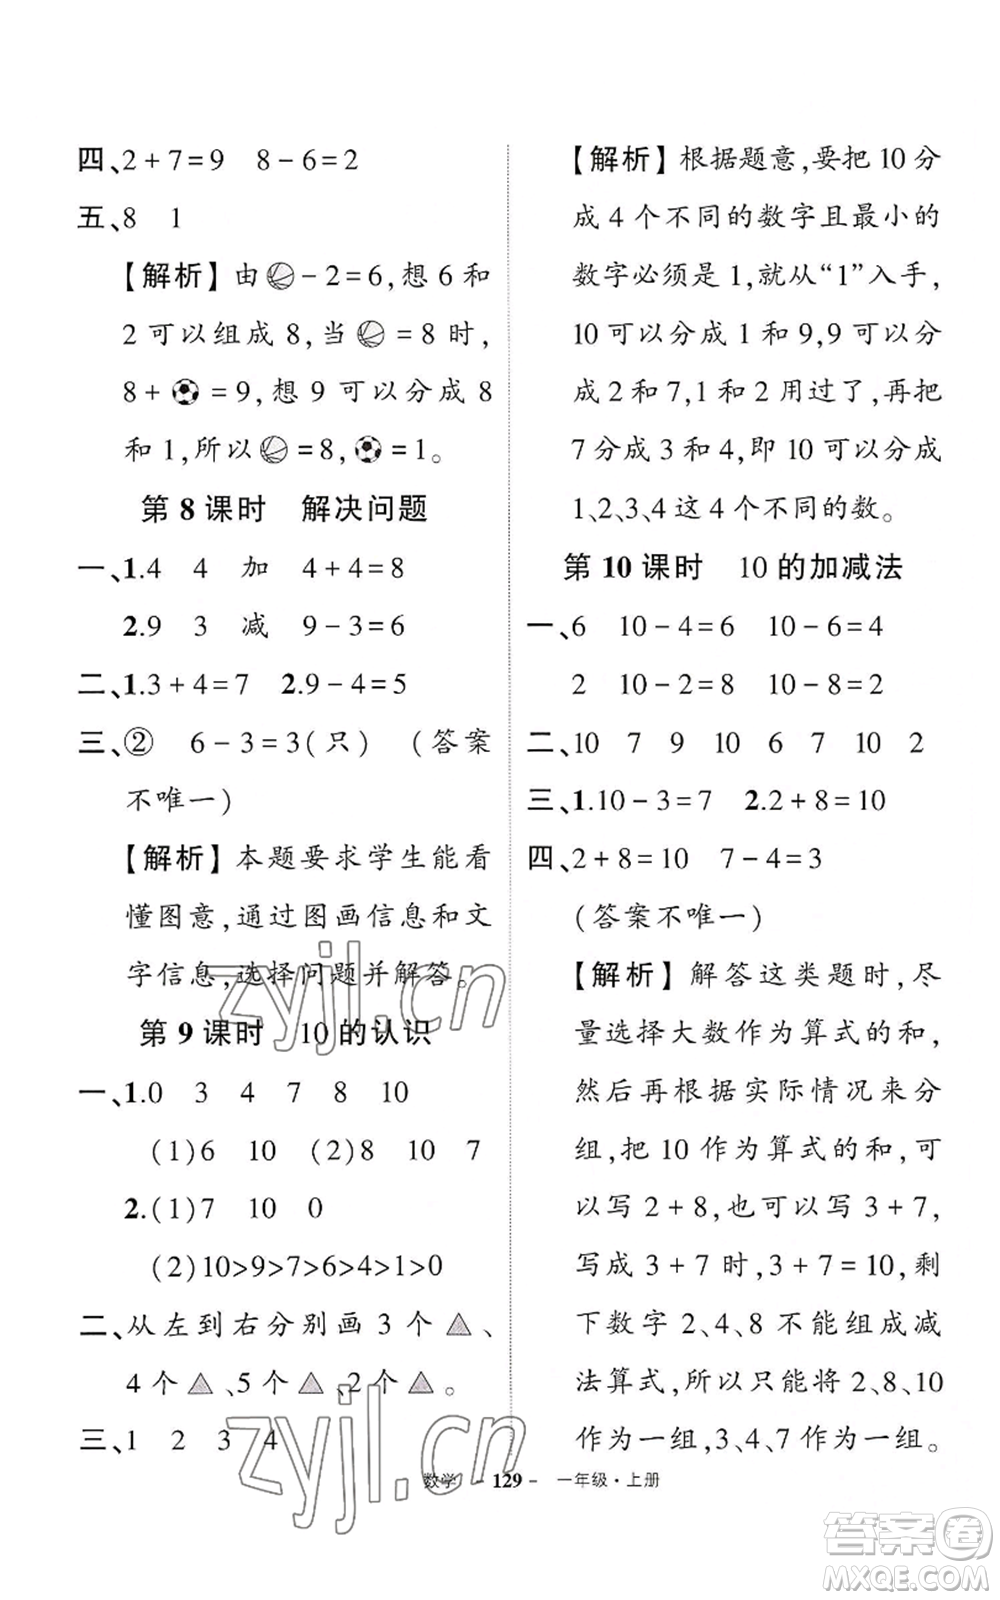 四、2+7=9 8-6=2
五、8 1
【解析】由🏀-2=6,想 6 和
2 可以组成 8,当🏀=8 时,
8+⚽=9,想 9 可以分成 8
和 1,所以🏀=8,⚽=1。
第 8 课时 解决问题
一、1.4 4 加 4+4=8
2.9 3 减 9-3=6
二、1.3+4=7 2.9-4=5
三、② 6-3=3(只) (答案
不唯一)
【解析】本题要求学生能看
懂图意,通过图画信息和文
字信息,选择问题并解答。
第 9 课时 10 的认识
一、1.0 3 4 7 8 10
(1)6 10 (2)8 10 7
2.(1)7 10 0
(2)10>9>7>6>4>1>0
二、从左到右分别画 3 个▲、
4 个▲、5 个▲、2 个▲。
三、1 2 3 4
【解析】根据题意,要把 10 分
成 4 个不同的数字且最小的
数字必须是 1,就从“1”入手,
10 可以分成 1 和 9,9 可以分
成 2 和 7,1 和 2 用过了,再把
7 分成 3 和 4,即 10 可以分成
1、2、3、4 这 4 个不同的数。
第 10 课时 10 的加减法
一、6 10-4=6 10-6=4
2 10-2=8 10-8=2
二、10 7 9 10 6 7 10 2
三、1.10-3=7 2.2+8=10
四、2+8=10 7-4=3
(答案不唯一)
【解析】解答这类题时,尽
量选择大数作为算式的和,
然后再根据实际情况来分
组,把 10 作为算式的和,可
以写 2+8,也可以写 3+7,
写成 3+7 时,3+7=10,剩
下数字 2、4、8 不能组成减
法算式,所以只能将 2、8、10
作为一组,3、4、7 作为一组。
数学 - 129 - 一年级·上册
zyjl.cn
zyjl.cn
答案圈
MXQE.COM